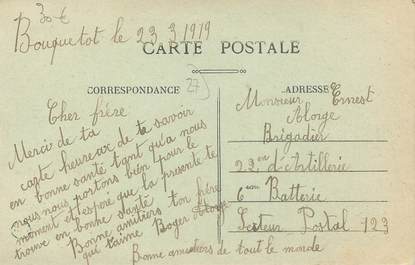 30 €
Bouquetot le 23 3 1919
CARTE POSTALE
CORRESPONDANCE
27
Cher frère
Merci de ta
carte heureux de te savoir
en bonne santé tant qu'a nous
nous nous portons bien pour le
moment et j'espère que la présente te
trouve en bonne santé
Bonne amitiers ton frère
qui t'aime Roger Alorge
ADRESSE
Monsieur Ernest
Alorge
Brigadier
22 em d'Artillerie
6 em Batterie
Secteur Postal 123
Bonne amitiers de tout le monde